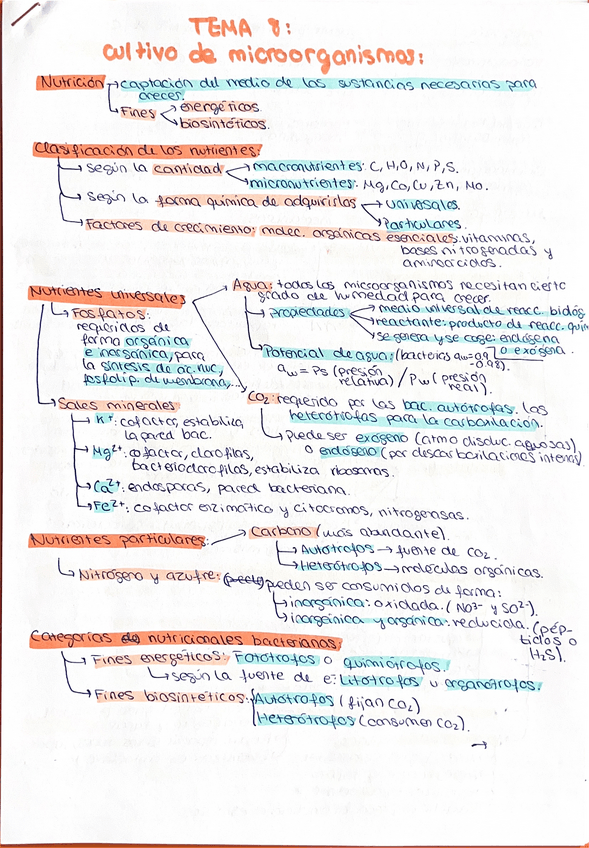 TEMA 8:
cultivo de microorganismos:
Nutrición → captación del medio de las sustancias necesarias para
crecer.
→ Fines → energéticos.
→ biosintéticos.
Clasificación de los nutrientes:
→ según la cantidad → macronutrientes: C, H, O, N, P, S.
→ micronutrientes: Mg, Co, Cu, Zn, Mo.
→ según la forma química de adquirirlos → universales.
→ Particulares.
→ Factores de crecimiento: molec. orgánicas esenciales: vitaminas,
bases nitrogenadas y
aminoácidos.
Nutrientes universales
→ Agua: todos los microorganismos necesitan cierto
grado de humedad para crecer.
→ Propiedades → medio universal de reacc. bioq.
→ reactante: producto de reacc. quim
→ se genera y se coge: endógena
o exógena.
→ Potencial de agua: (bacterias aw = 0,9
-0,98).
aw = Ps (presión
relativa) / Pw (presión
real).
→ Fosfatos:
requeridos de
forma orgánica
e inorgánica, para
la síntesis de ác. nuc,
fosfolip. de membrana,...
→ CO2: requerido por las bac. autótrofas. las
heterótrofas para la carboxilación.
→ Puede ser exógeno (atmo disduc. aquosas)
o endógeno (por descarboxilaciones internas)
→ Sales minerales
→ K+: cofactor, estabiliza
la pared bac.
→ Mg2+: cofactor, clorofilas,
bacterioclorofilas, estabiliza ribosomas.
→ Ca2+: endosporas, pared bacteriana.
→ Fe2+: cofactor enzimático y citocromos, nitrogenasas.
Nutrientes particulares:
→ Carbono (más abundante).
→ Autótrofos → fuente de CO2.
→ Heterótrofos → moléculas orgánicas.
→ Nitrógeno y azufre: pueden ser consumidos de forma:
→ inorgánica: oxidada. (NO3- y SO2-).
→ inorgánica y orgánica: reducida. (pép-
tidos o
H2S).
Categorías nutricionales bacterianas:
→ Fines energéticos: Fotótrofos o quimiótrofos.
→ según la fuente de e-: Litótrofos u organótrofos.
→ Fines biosintéticos: Autótrofos (fijan CO2)
Heterótrofos (consumen CO2).
→